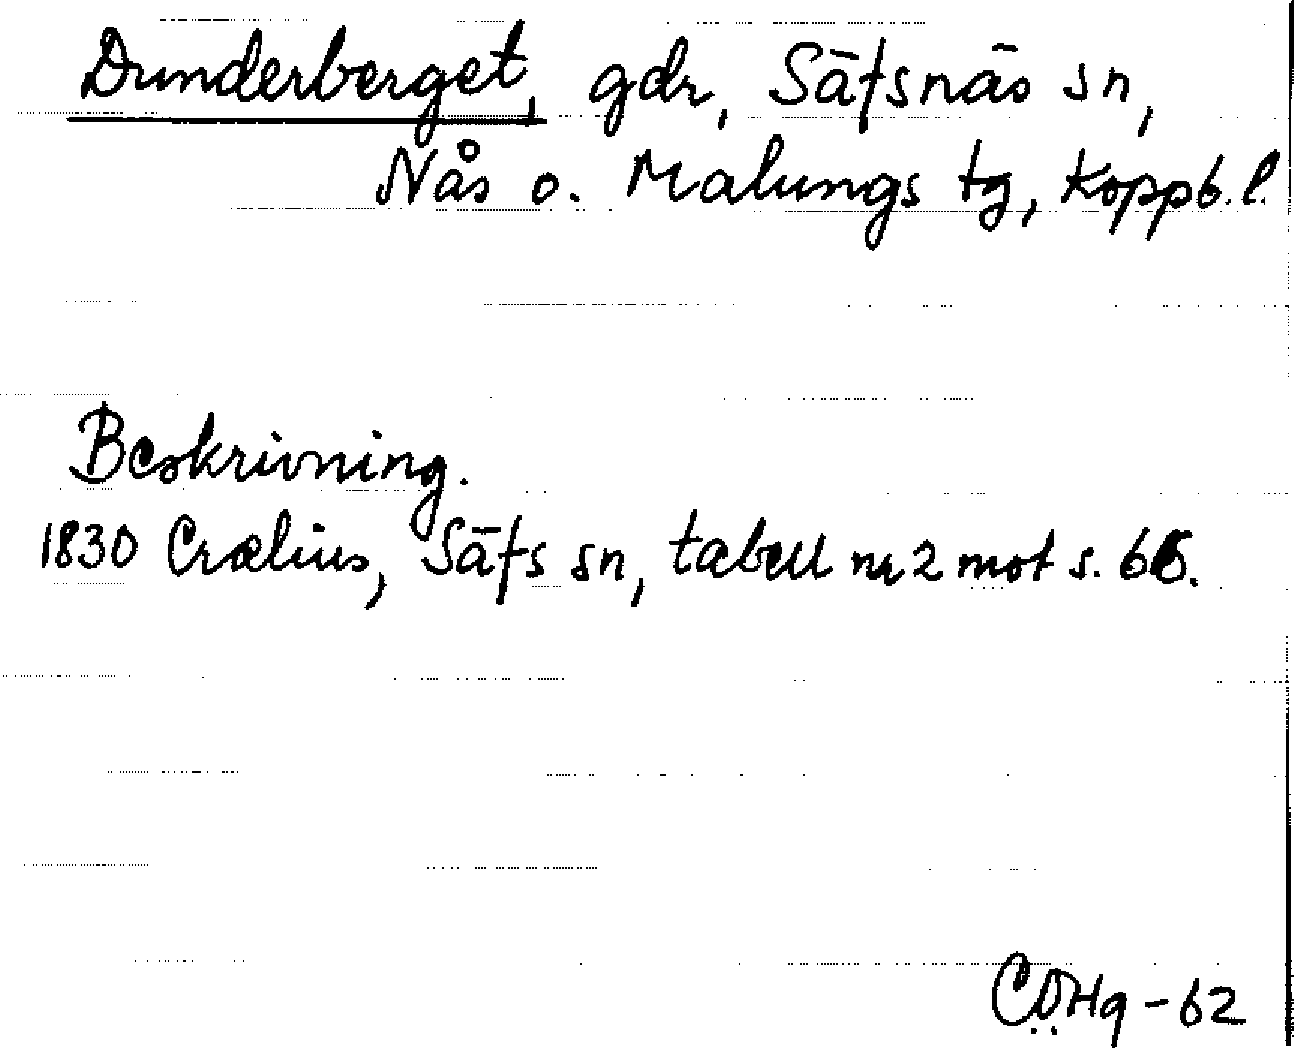 Dunderberget, gdr, Säfsnäs sn,
Nås o. Malungs tg, Koppb. l.
Beskrivning.
1830 Crælius, Säfs sn, tabell nr 2 mot s.
CÖHg - 62